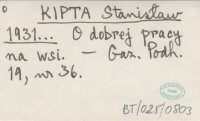 KIPTA Stanisław
1931... O dobrej pracy
na wsi. — Gaz. Podh.
19, nr 36.
BT/025/0503